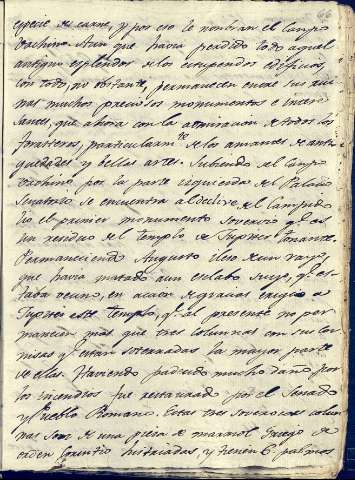 66
especie de carne, y por eso le nombran el Campo
Vachino. Aun que havia perdido todo aquel
antiguo esplendor de los estupendos edificios,
con todo, no obstante, permanecen entre sus rui-
nas muchos preciosos monumentos e intere-
santes, que ahora con la admiracion de todos los
forasteros, particularm.te de los amantes de anti-
guedades y bellas artes. Subiendo del Campo
Vachino por la parte izquierda del Palacio
Senatorio se encuentra al declive del Campido-
lio el primer monumento q.e es
un residuo del templo de Jupiter tonante.
Permaneciendo Augusto ileso de un rayo,
que havia matado a un esclabo suyo, q.e es-
taba en accion de gracias erigio a
Jupiter este templo, q.e al presente no per-
manecen mas que tres columnas con su cor-
nisa y estan soterradas la mayor parte
de ellas. Haviendo padecido mucho daño por
los incendios fue restaurado por el Senado
y Pueblo Romano. Estas tres colum-
nas son de una pieza de marmol Griego de
orden Corintio histriadas, y tienen 6. palmos